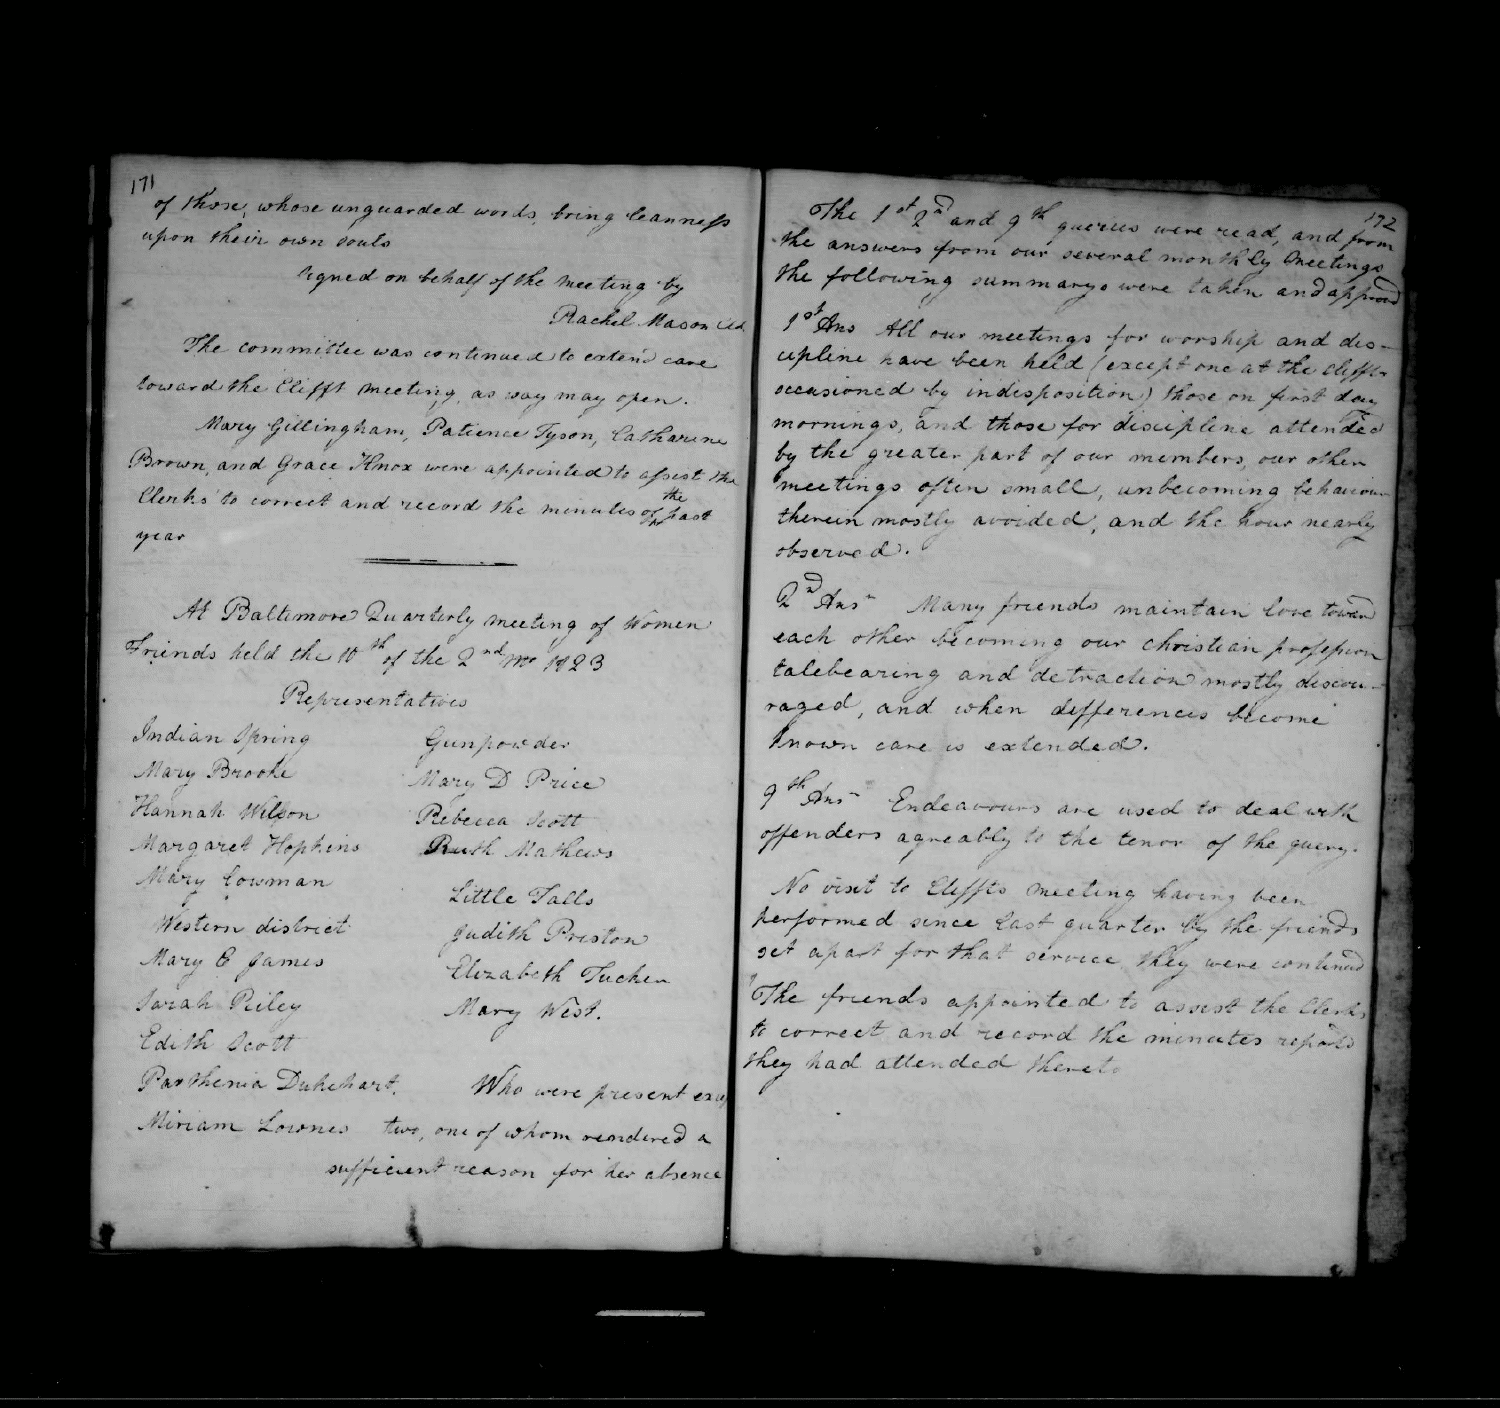 171
of those, whose unguarded words, bring leanness
upon their own souls
Signed on behalf of the meeting by
Rachel Mason Clk
The committee was continued to extend care
toward the Clifft meeting, as way may open.
Mary Gillingham, Patience Tyson, Catharine
Brown, and Grace Knox were appointed to assist the
Clerks to correct and record the minutes of the past
year
At Baltimore Quarterly meeting of Women
Friends held the 10th of the 2nd mo 1823
Representatives
Indian Spring
Mary Brooke
Hannah Wilson
Margaret Hopkins
Mary Cowman
Western district
Mary E James
Sarah Riley
Edith Scott
Parthenia Dukehart.
Miriam Lownes
Gunpowder
Mary D Price
Rebecca Scott
Ruth Mathews
Little Falls
Judith Preston
Elizabeth Tucker
Mary West.
Who were present except
two, one of whom rendered a
sufficient reason for her absence
172
The 1st 2nd and 9th queries were read, and from
the answers from our several monthly meetings
the following summarys were taken and approved
1st Ans All our meetings for worship and dis-
cipline have been held (except one at the Cliffts
occasioned by indisposition) those on first day
mornings, and those for discipline attended
by the greater part of our members, our other
meetings often small, unbecoming behaviour
therein mostly avoided, and the hour nearly
observed.
2nd Ans Many friends maintain love toward
each other becoming our christian profession
talebearing and detraction mostly discou-
raged, and when differences become
known care is extended.
9th Ans Endeavours are used to deal with
offenders agreably to the tenor of the query.
No visit to Cliffts meeting having been
performed since last quarter by the friends
set apart for that service, they were continued
The friends appointed to assist the Clerks
to correct and record the minutes reported
they had attended thereto